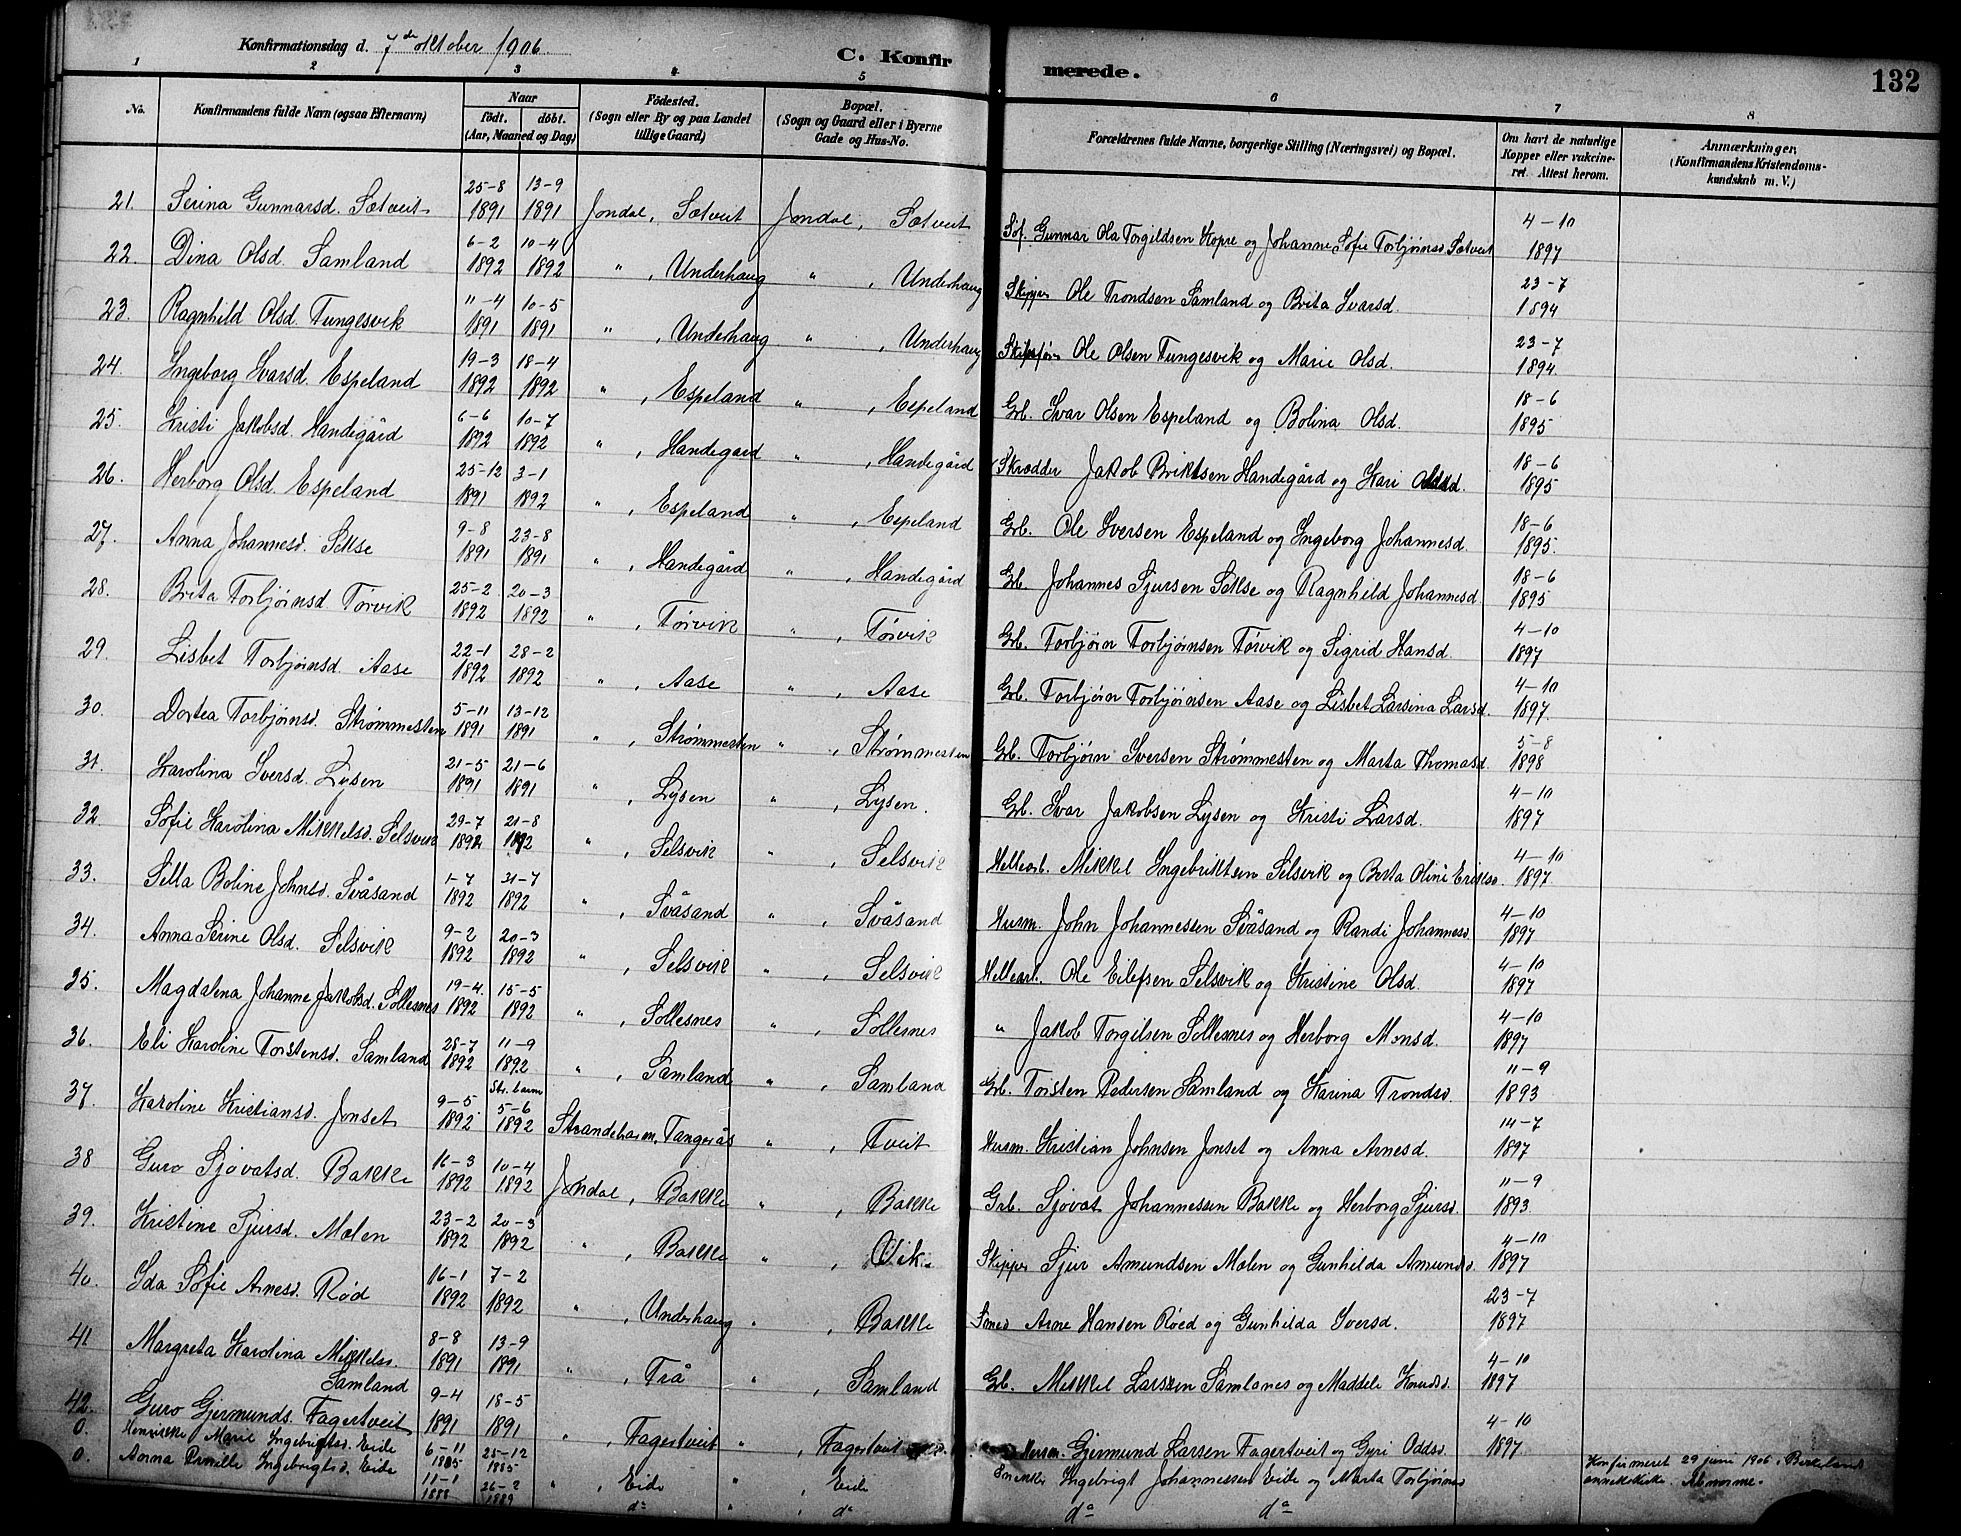 Konfirmationsdag d. 7de oktober 1906. C. Konfirmerede. 132
1 2 3 4 5 6 7 8
No. Konfirmandens fulde Navn (ogsaa Efternavn) Naar født. døbt. (Aar, Maaned og Dag) Fødested. (Sogn eller By og paa Landet tillige Gaard) Bopæl. (Sogn og Gaard eller i Byerne Gade og Hus-No. Forældrenes fulde Navne, borgerlige Stilling (Næringsvei) og Bopæl. Om havt de naturlige Kopper eller vakcineret. Attest herom. Anmærkninger, (Konfirmandens Kristendomskundskab m. V.)
21. Serina Gunnarsd. Sætveit 25-8 1891 13-9 1891 Jondal, Sætveit Jondal, Sætveit Gunnar Ola Torgildsen Kopre og Johanne Sofie Torbjørnsd. Sætveit 4-10 1897
22 Dina Olsd. Samland 6-2 1892 10-4 1892 " , Underhaug " , Underhaug Skipper Ole Trondsen Samland og Brita Ivarsd. 23-7 1894
23. Ragnhild Olsd. Tungesvik 11-4 1891 10-5 1891 " , Underhaug " , Underhaug Ole Olsen Tungesvik og Marie Olsd. 23-7 1894.
24. Ingeborg Ivarsd. Espeland 19-3 1892 18-4 1892 " , Espeland " , Espeland Grb. Ivar Olsen Espeland og Bolina Olsd. 18-6 1895
25. Kristi Jakobsd. Handegård 6-6 1892 10-7 1892 " , Handegård " , Handegård Skrædder Jakob Briktsen Handegård og Kari 18-6 1895
26. Herborg Olsd. Espeland 25-12 1891 3-1 1892 " , Espeland " , Espeland Grb. Ole Iversen Espeland og Ingeborg Johannesd. 18-6 1895.
27. Anna Johannesd. Sekse 9-8 1891 23-8 1891 " , Handegård " , Handegård Grb. Johannes Sjursen Sekse og Ragnhild Johannesd 18-6 1895
28. Brita Torbjørnsd Tørvik 25-2 1892 20-3 1892 " , Tørvik " , Tørvik Grb. Torbjørn Torbjørnsen Tørvik og Sigrid Hansd. 4-10 1897
29. Lisbet Torbjørnsd. Aase 22-1 1892 28-2 1892 " , Aase " , Aase Grb. Torbjørn Torbjørnsen Aase og Lisbet Larsina Larsd. 4-10 1897.
30. Dortea Torbjørnsd. Strømmesten 5-11 1891 13-12 1891 " , Strømmesten " , Strømmesten Grb. Torbjørn Iversen Strømmesten og Marta Thomasd. 5-8 1898
31. Karolina Iversd. Lysen 21-5 1891 21-6 1891 " , Lysen " , Lysen. Grb. Ivar Jakobsen Lysen og Kristi Larsd. 4-10 1897
32. Sofie Karolina Mikkelsd. Selsvik 29-7 1892 21-8 1892 " , Selsvik " , Selsvik Hellearb. Mikkel Ingebriktsen Selsvik og Berta Oline Eriksd. 4-10 1897
33. Sella Boline Johnsd. Svåsand 1-7 1892 31-7 1892 " , Svåsand " , Svåsand Husm. John Johannessen Svåsand og Randi Johannesd 4-10 1897
34. Anna Serine Olsd. Selsvik 9-2 1892 20-3 1892 " , Selsvik " , Selsvik Hellearb. Ole Eilefsen Selsvik og Kristine Olsd. 4-10 1897
35. Magdalena Johanne Jakobsd. Sollesnes 19-4. 1892 15-5 1892 " , Sollesnes " , Sollesnes " Jakob Torgilsen Sollesnes og Herborg Monsd. 4-10 1897
36. Eli Karoline Torstensd. Samland 28-7 1892 11-9 1892 " , Samland " , Samland Grb. Torsten Pedersen Samland og Karina Trondsd. 11-9 1893
37. Karoline Kristiansd. Jonset 9-5 1892 Str. barm 5-6 1892 Strandebarm, Tangerås " , Tveit Husm. Kristian Johnsen Jonset og Anna Arnesd. 14-7 1897
38 Guro Sjovatsd. Bakke 16-3 1892 10-4 1892 Jondal, Bakke " , Bakke Grb. Sjovat Johannessen Bakke og Herborg Sjursd. 11-9 1893
39. Kristine Sjursd. Mælen 23-2 1892 20-3 1892 " , Bakke " , Vik. Skipper Sjur Amundsen Mælen og Gunhilda Amundsd. 4-10 1897
40. Ida Sofie Arnesd. Rød 16-1 1892 7-2 1892 " , Underhaug " , Bakke Smed Arne Hansen Røed og Gunhilda Iversd. 23-7 1897
41 Margreta Karolina Mikkelsd. Samland 8-8 1891 13-9 1891 " , Trå " , Samland Grb. Mikkel Larssen Samland og Maddeli Knudsd. 4-10 1897
42. Guro Gjermunds. Fagertveit 9-4 1891 18-5 1891 " , Fagertveit " , Fagertveit Husm. Gjermund Larsen Fagertveit og Guri Oddsd. 4-10 1897
0. Henrikke Marie Ingebrigtsd. Eide 6-11 1885 25-12 1885 " , Eide " , Eide Enkem. Ingebrigt Johannessen Eide og Marta Torbjørnsd Konfirmeret 29 juni 1906 i Birkeland annekskirke. Abnorme.
0. Anna Pernille Ingebrigtsd. Eide 11-1 1888 26-2 1889 do " , do do do